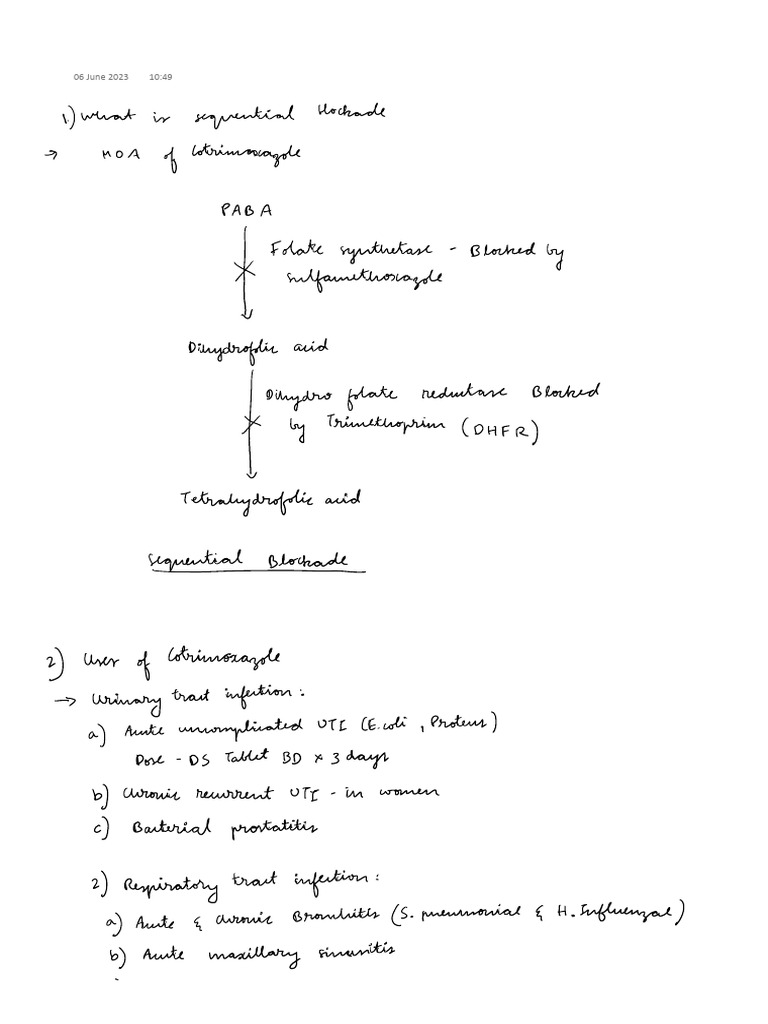 06 June 2023 10:49
1.) What is sequential blockade
→ MOA of Cotrimoxazole
PABA
Folate synthetase - Blocked by
sulfamethoxazole
Dihydrofolic acid
Dihydro folate reductase Blocked
by Trimethoprim (DHFR)
Tetrahydrofolic acid
Sequential Blockade
2) Uses of Cotrimoxazole
→ Urinary tract infection:
a) Acute uncomplicated UTI (E.coli, Proteus)
Dose - DS Tablet BD x 3 days
b) Chronic recurrent UTI - in women
c) Bacterial prostatitis
2) Respiratory tract infection:
a) Acute & Chronic Bronchitis (S. pneumoniae & H. Influenzae)
b) Acute maxillary sinusitis